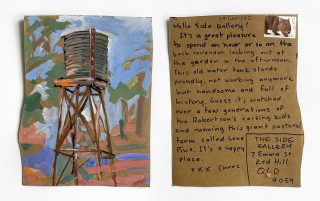 Hello Side Gallery!
It's a great pleasure
to spend an hour or so on the
back verandah looking out at
the garden in the afternoon.
This old water tank stands
proudly, not working anymore
but handsome and full of
history. Guess it's watched
over a few generations of
the Robertson's raising kids
and running this giant pastoral
farm called Lone
Pine. It's a happy
place.
xxx
THE SIDE
GALLERY
7 Emma St
Red Hill
QLD
4059